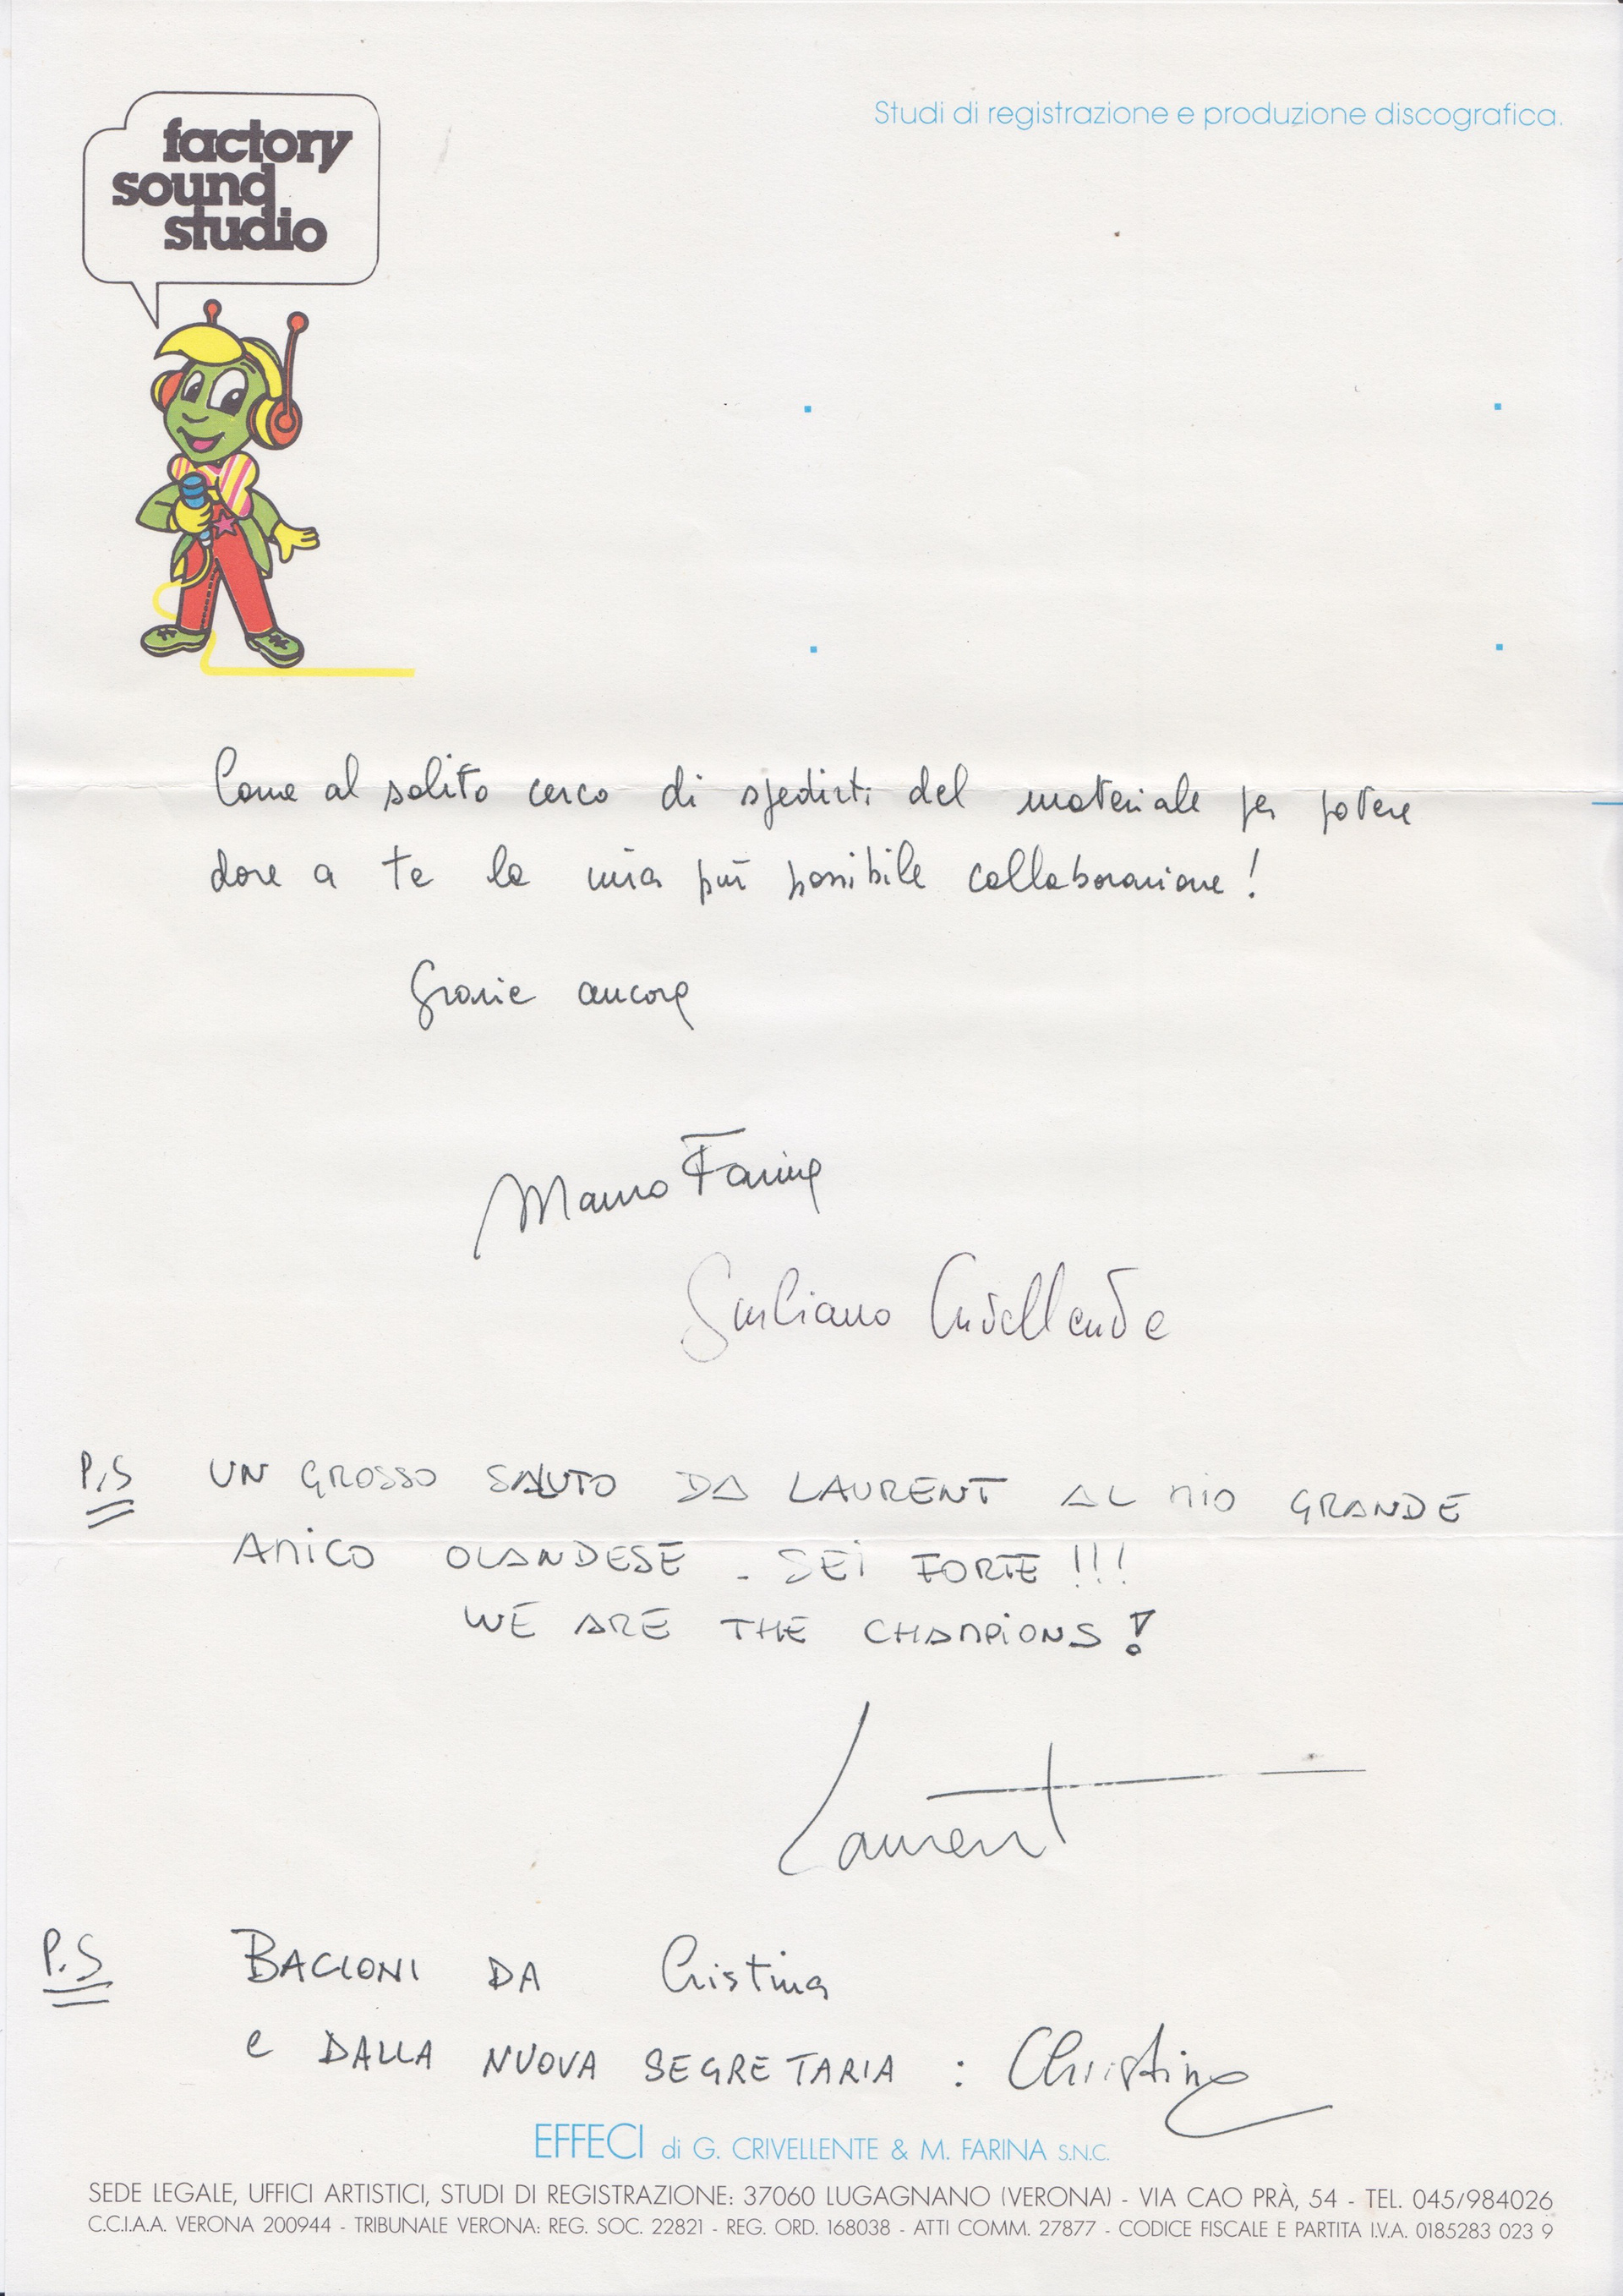 factory
sound
studio
Studi di registrazione e produzione discografica.
Come al solito cerco di spedirti del materiale per potere
dare a te la mia più possibile collaborazione!
Grazie ancora
Mauro Farina
Giuliano Crivellente
P.S UN GROSSO SALUTO DA LAURENT AL MIO GRANDE
AMICO OLANDESE - SEI FORTE!!!
WE ARE THE CHAMPIONS!
Laurent
P.S BACIONI DA Cristina
e DALLA NUOVA SEGRETARIA : Christine
EFFECI di G. CRIVELLENTE & M. FARINA S.N.C.
SEDE LEGALE, UFFICI ARTISTICI, STUDI DI REGISTRAZIONE: 37060 LUGAGNANO (VERONA) - VIA CAO PRÀ, 54 - TEL. 045/984026
C.C.I.A.A. VERONA 200944 - TRIBUNALE VERONA: REG. SOC. 22821 - REG. ORD. 168038 - ATTI COMM. 27877 - CODICE FISCALE E PARTITA I.V.A. 0185283 023 9